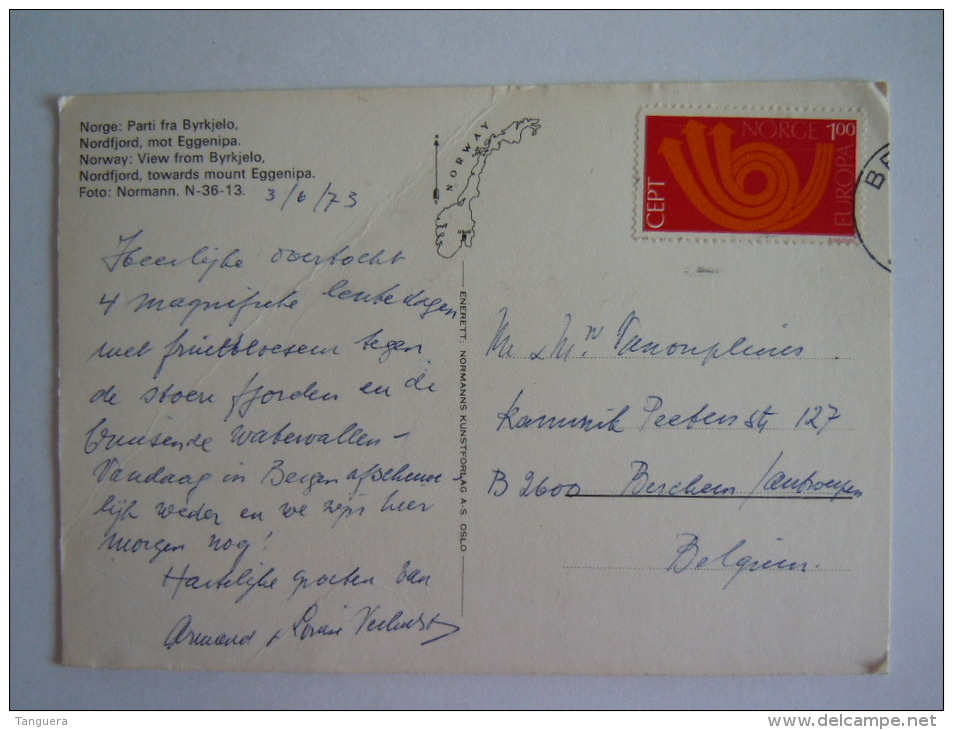 Norge: Parti fra Byrkjelo,
Nordfjord, mot Eggenipa.
Norway: View from Byrkjelo,
Nordfjord, towards mount Eggenipa.
Foto: Normann. N-36-13.
3/6/73
Heerlijke overtocht
4 magnifieke lentedagen
met fruitbloesem tegen
de stoere fjorden en de
bruisende watervallen -
Vandaag in Bergen afschuwe
lijk weder en we zijn hier
morgen nog!
Hartelijke groeten van
Armand & Louise Verhulst
NORWAY
ENERETT: NORMANNS KUNSTFORLAG A-S OSLO
NORGE 1.00
CEPT
EUROPA
BE
Mr & Mr
Peeters str 127
B 2600 Berchem/Antwerpen
Belgium.
Tanguera
www.delcampe.net